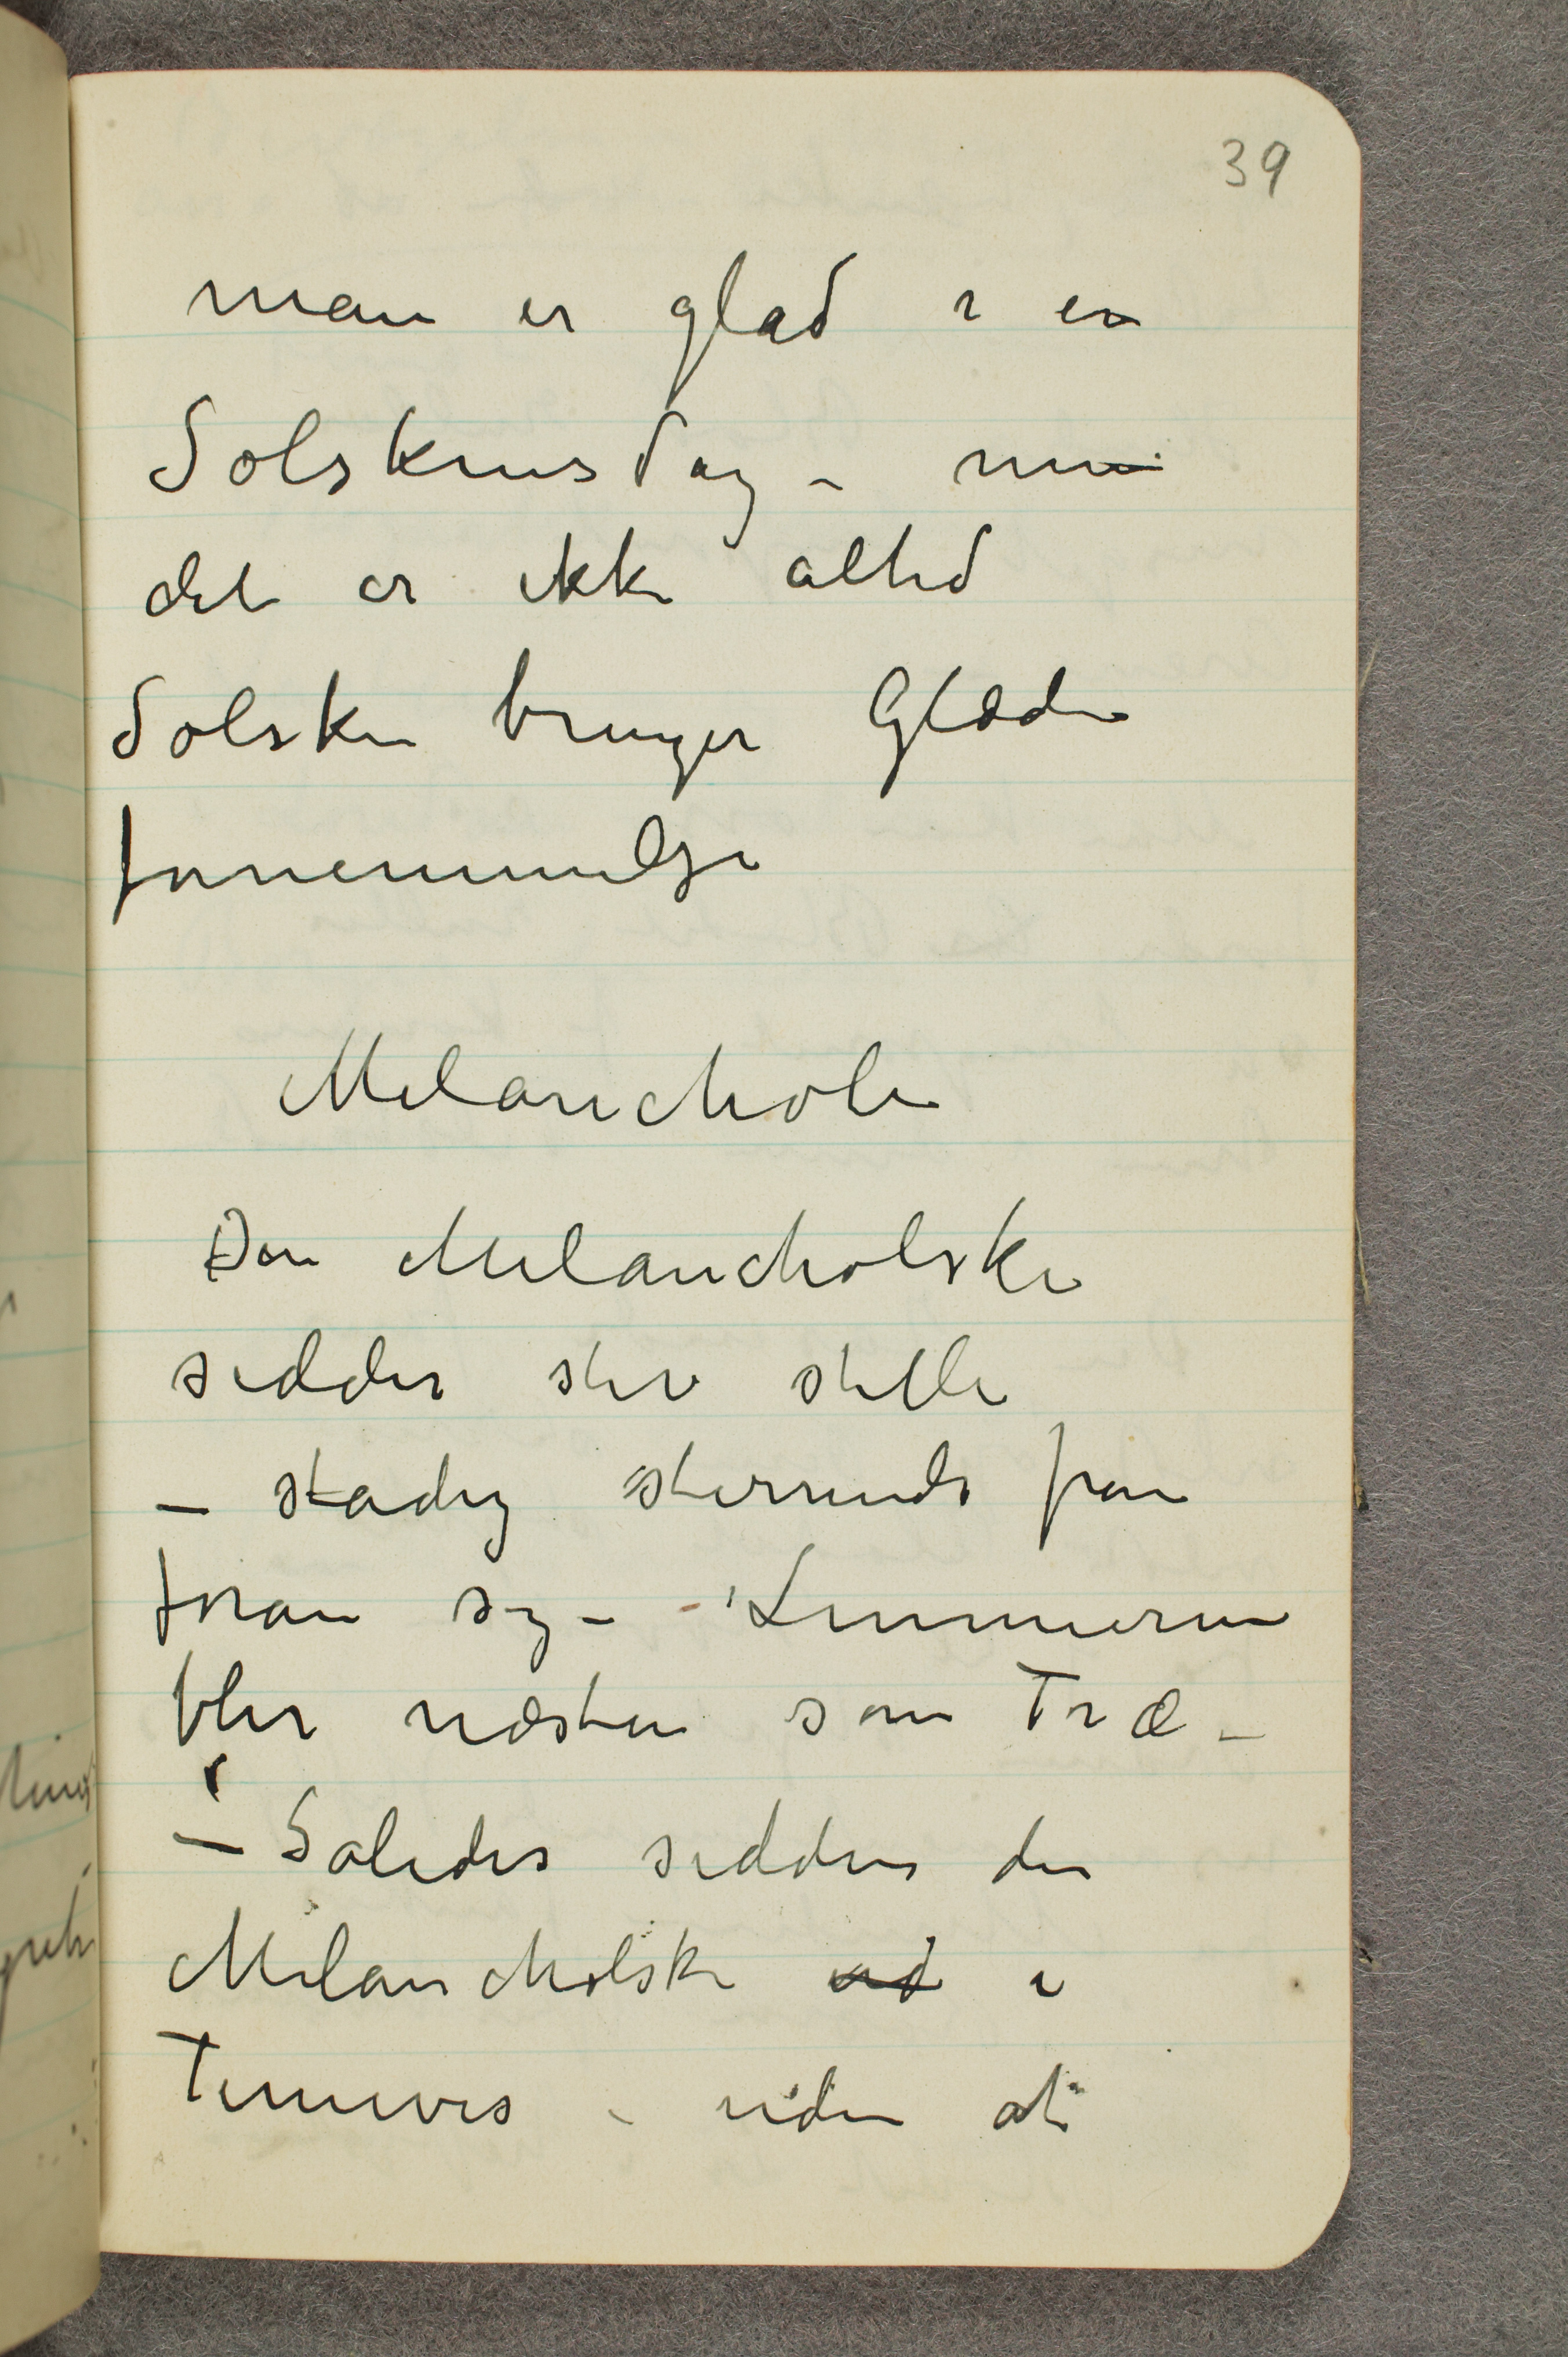 39
man er glad i en
Solskinsdag – men
det er ikke altid
Solskin bringer Glæde
fornemmelse
Melancholi
Den Melancholske
sidder stiv stille
– stadig stirrende fran
foran sig – Lemmerne
blir næsten som Træ –
– Således sidder den
Melancholske ud i
Timevis – uden at